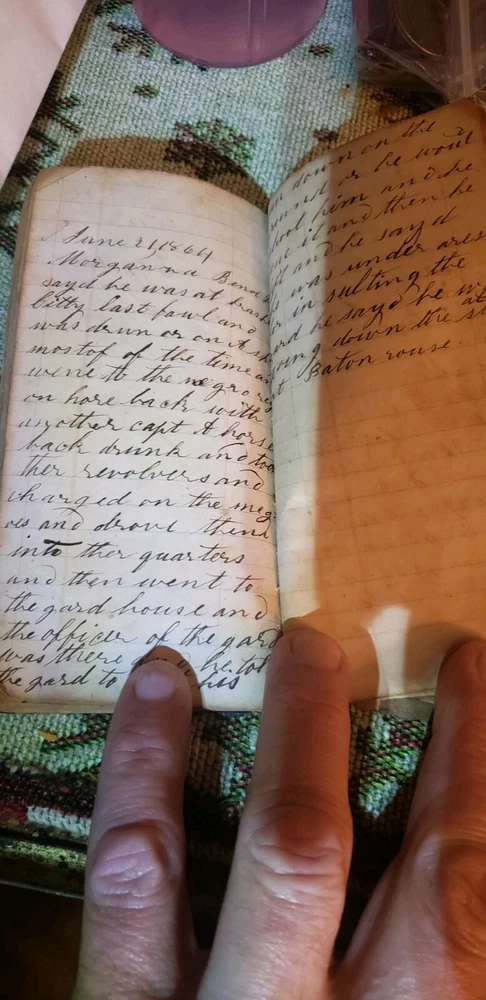 June 21 1864
Morganna Bend
sayd he was at
bitty last fawl and
was drun or on A
most of the time
went to the negro
on hore back with
another capt A horse
back drunk and too
ther revolvers and
charged on the neg
oes and drove them
into ther quarters
and then went to
the gard house and
the officer of the gard
was there he tol
the gard to his
down on the
or he woul
him and he
it and then he
and he sayd
was under ares
in sulting the
and he sayd he
going down the
at Baton rouse.